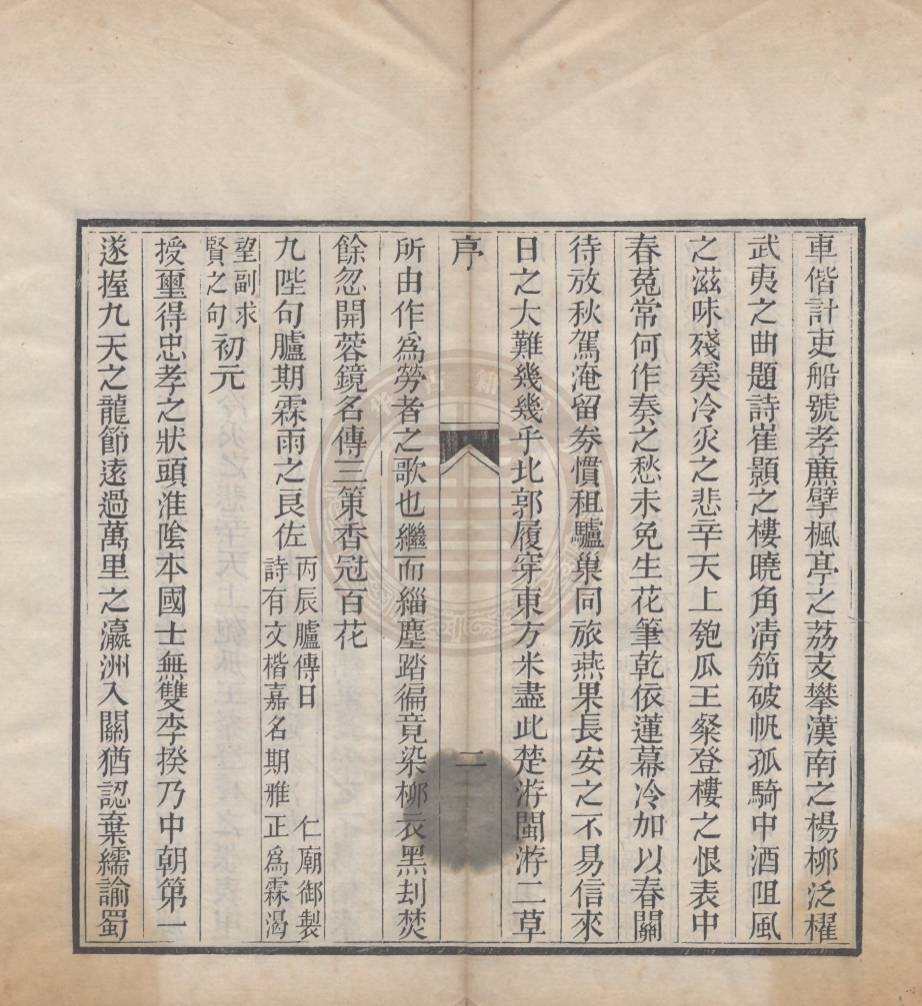 車偕計吏船號孝㢘擘楓亭之荔支攀漢南之楊柳泛櫂
武夷之曲題詩崔顥之樓曉角淸笳破帆孤騎中酒阻風
之滋味殘羮冷炙之悲辛天上匏瓜王粲登樓之恨表中
春菟常何作奏之愁未免生花筆乾依蓮幕冷加以春關
待放秋駕淹留劵慣租驢巢同旅燕果長安之不易信來
日之大難幾幾乎北郭履穿東方米盡此楚游閩游二草
序
二
所由作爲勞者之歌也繼而緇塵踏徧竟染栁衣黑刦焚
餘忽開蓉鏡名傳三策香冠百花
九陛句臚期霖雨之良佐丙辰臚傳日 仁廟御製
詩有文楷嘉名期雅正爲霖渴
望副求
賢之句初元
授璽得忠孝之狀頭淮陰本國士無雙李揆乃中朝第一
遂握九天之龍節遠過萬里之瀛洲入關猶認棄繻諭蜀